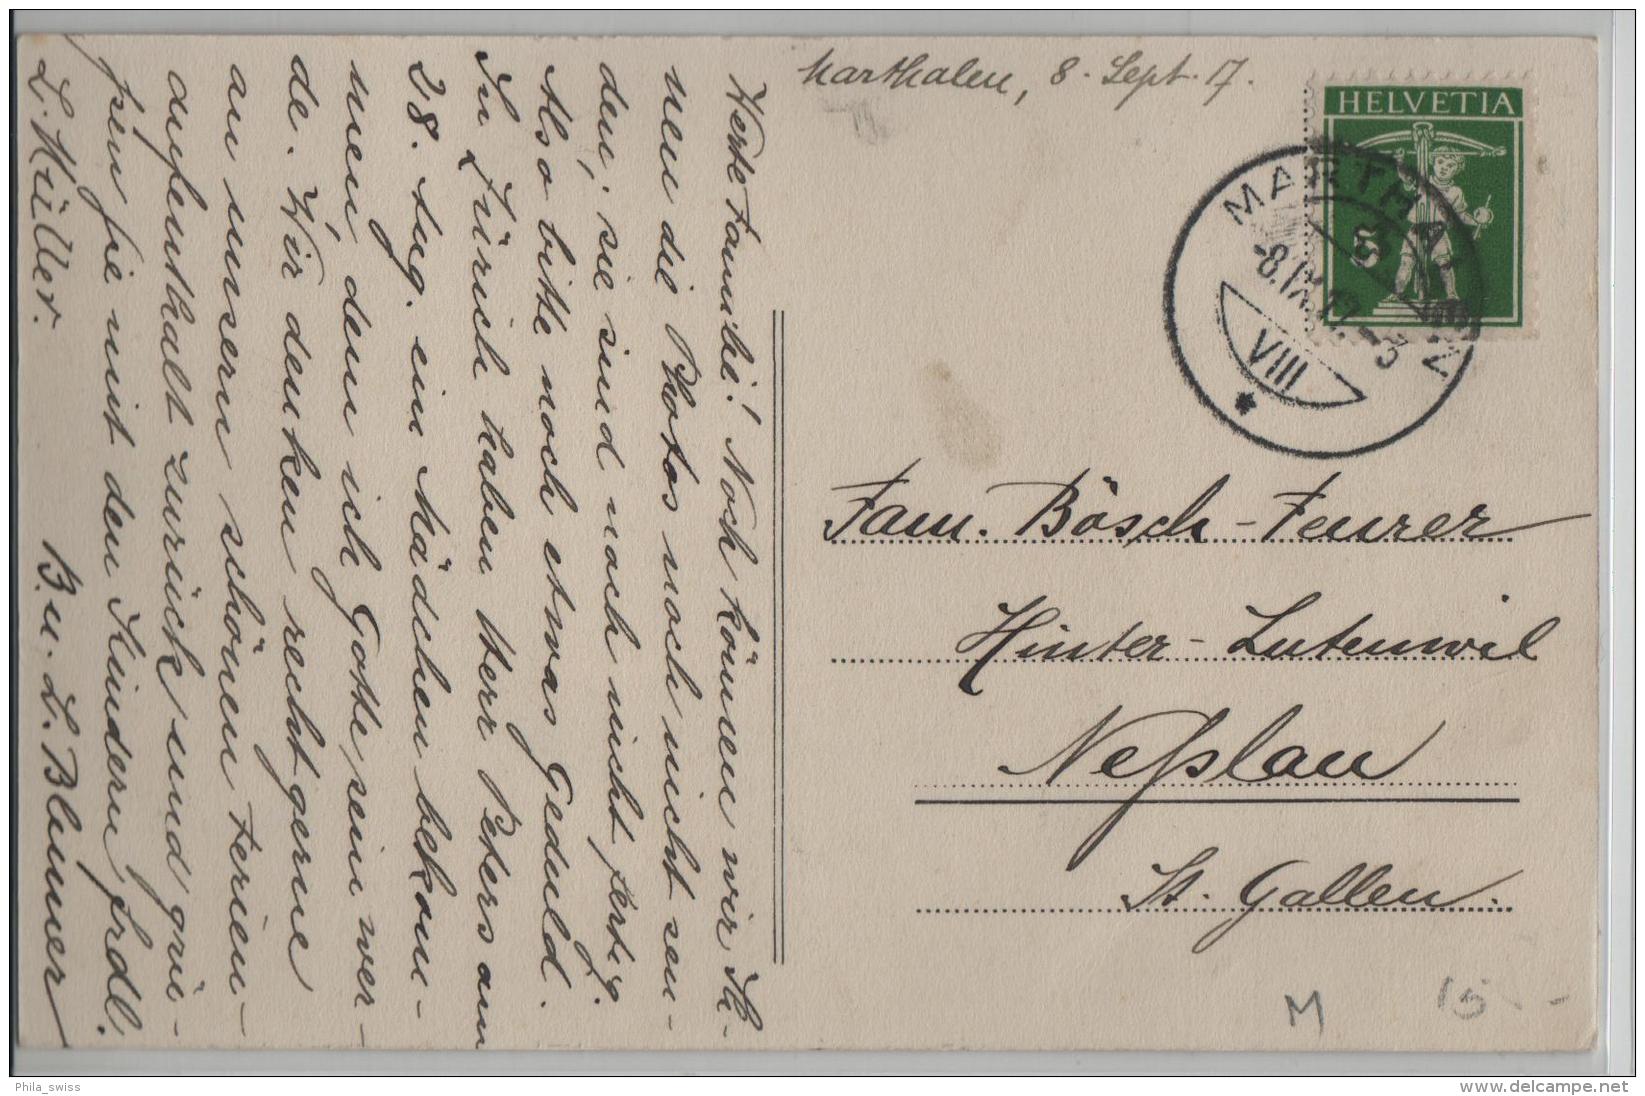 Marthalen, 8. Sept. 17.
HELVETIA
5
MARTHALEN
-8.IX.17.-3
VIII
Fam. Bösch-Feurer
Hinter-Lutenwil
Neßlau
St. Gallen.
Werte Familie! Noch können wir Ih-
nen die Photos noch nicht sen-
den, sie sind noch nicht fertig.
Also bitte noch etwas Geduld.
In Zürich haben Herr Peters am
28. Aug. ein Mädchen bekom-
men, dem ich Gotte sein wer-
de. Wir denken recht gerne
an unsern schönen Ferien-
aufenthalt zurück, und grü-
ßen sie mit den Kindern frdl.
L. Müller. B. u. L. Blumer
M 15.-
Phila_swiss
www.delcampe.net